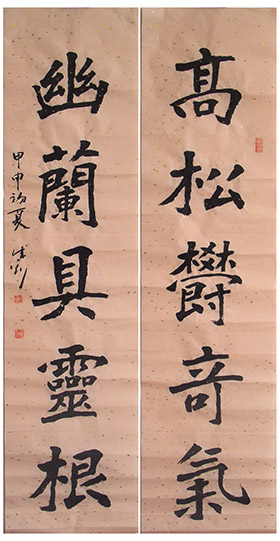 高松欝奇氣
幽蘭具靈根
甲申初夏